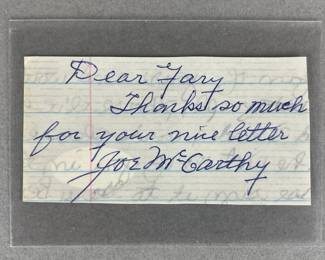 Dear Gary
Thanks so much
for your nice letter
Joe McCarthy